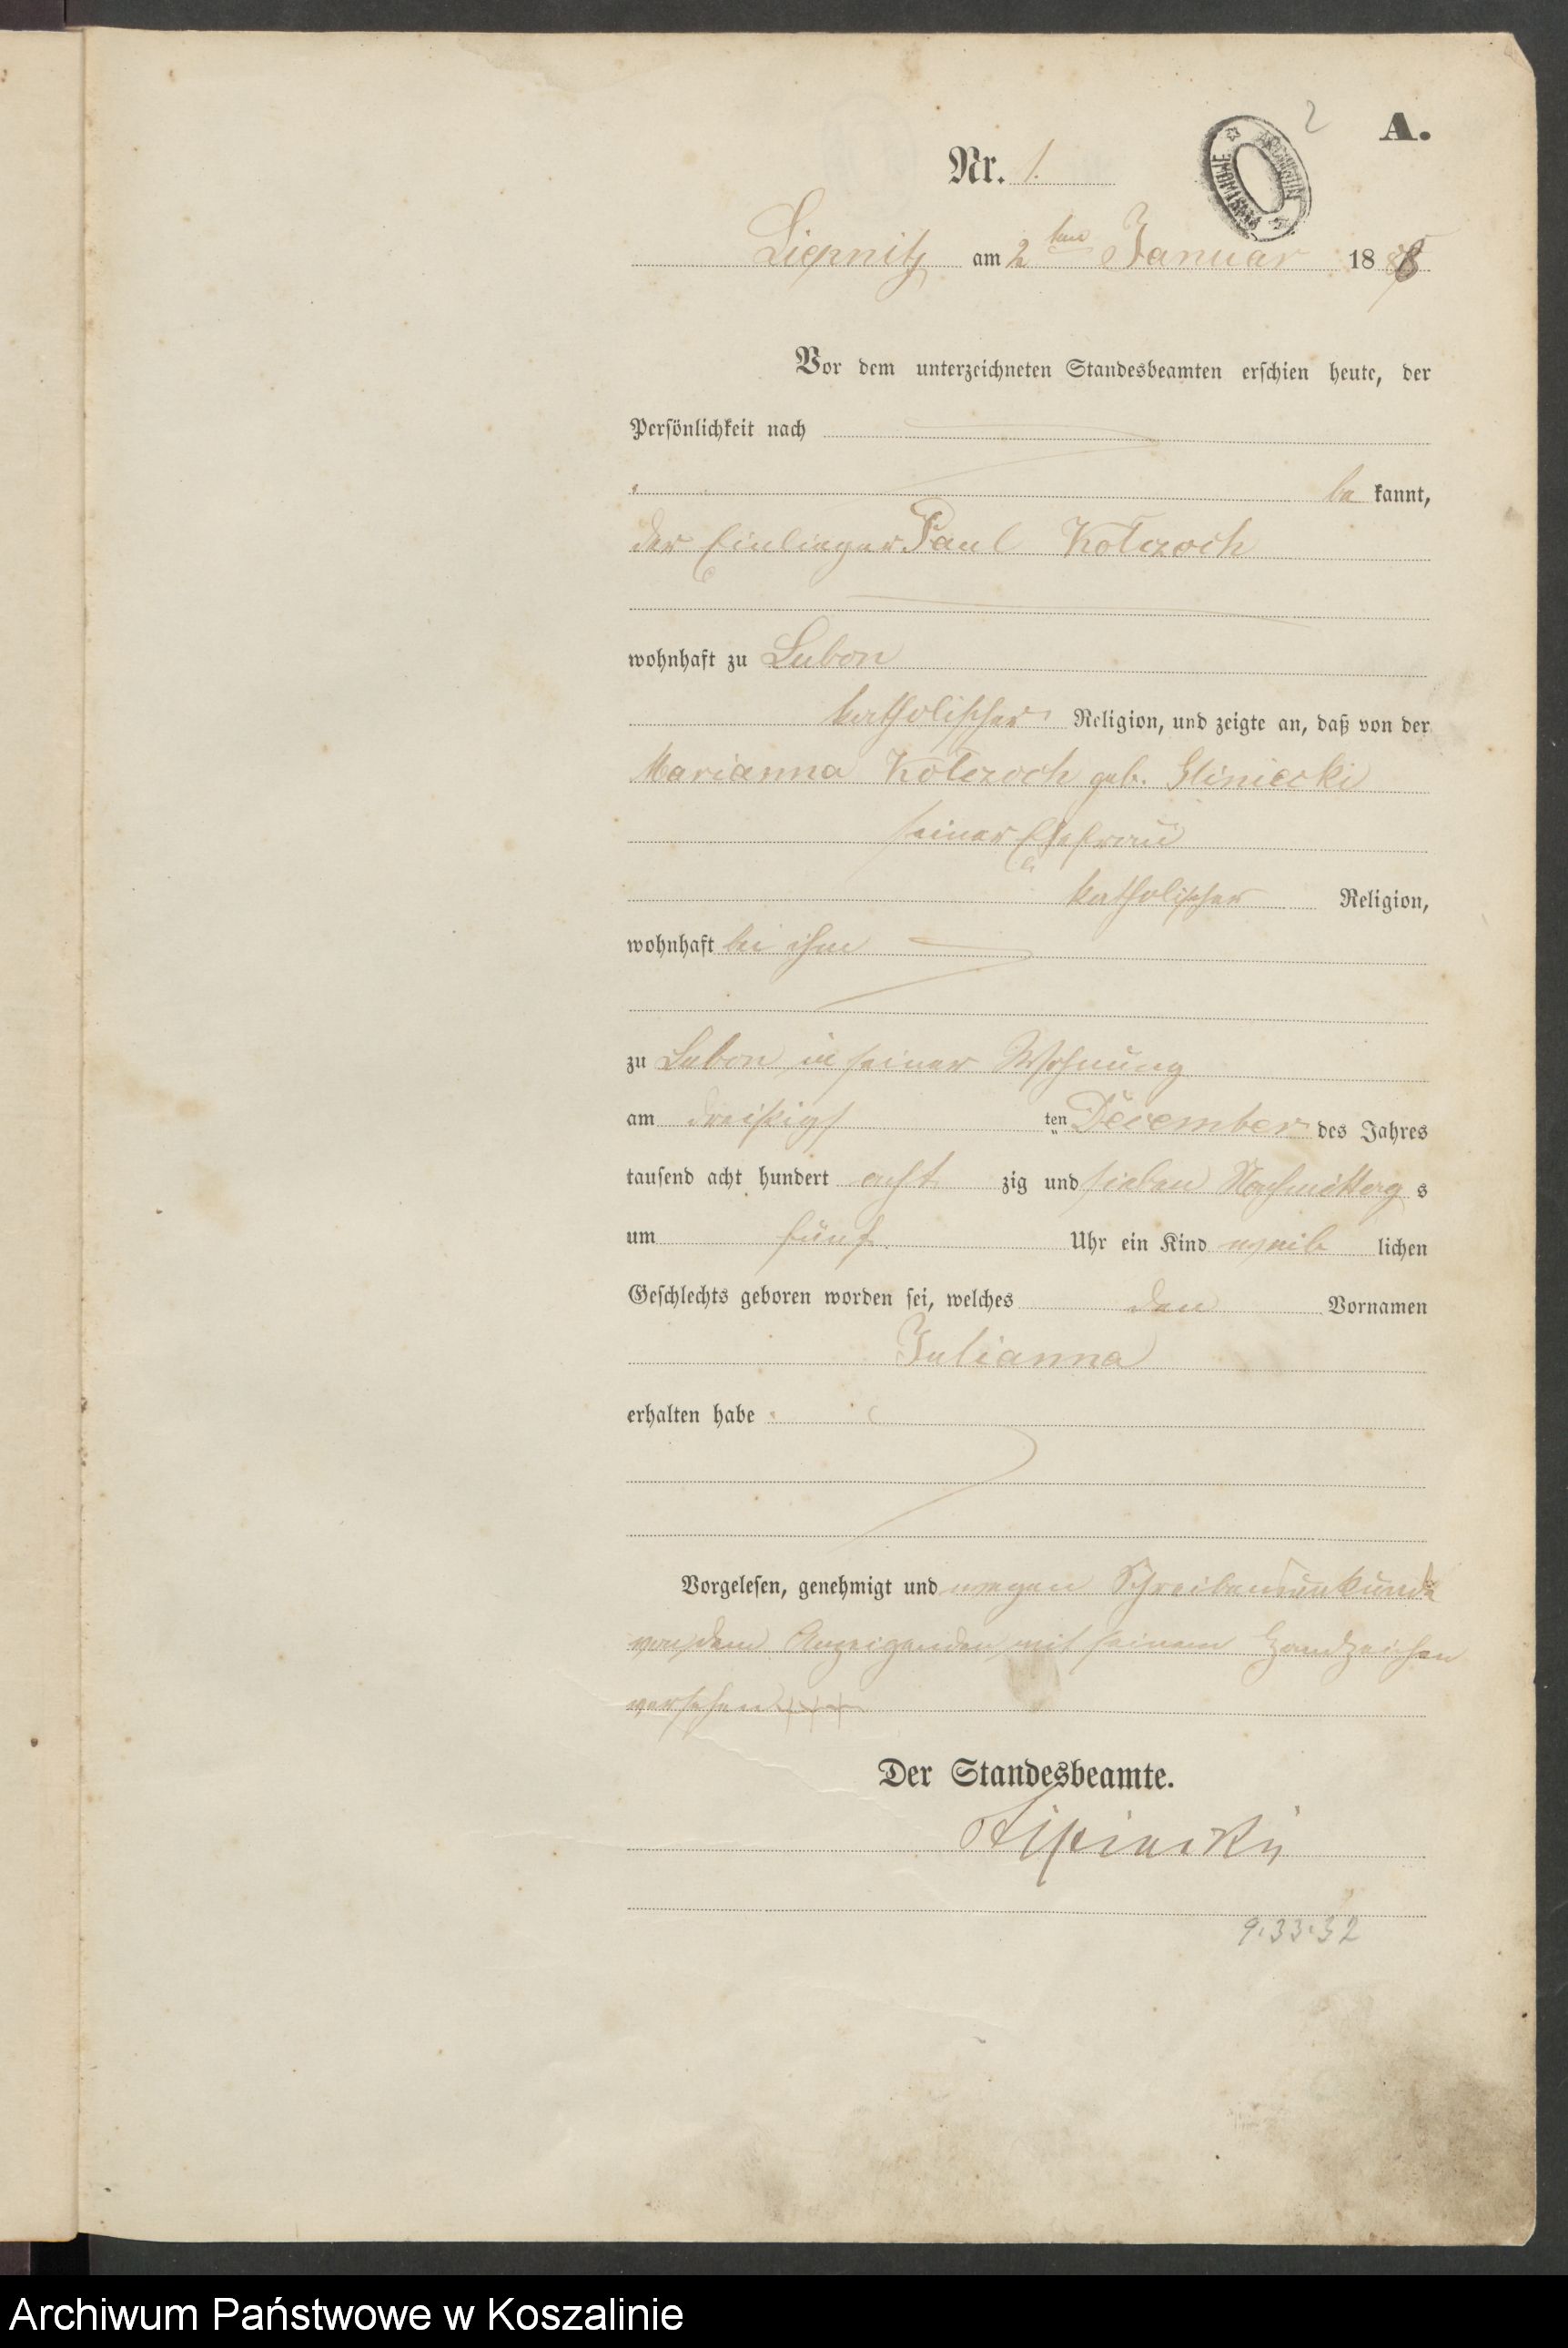 2
A.
Nr. 1.
Liepnitz am 2ten Januar 1888
Vor dem unterzeichneten Standesbeamten erschien heute, der
Persönlichkeit nach
be kannt,
der Einlieger Paul Kołczoch
wohnhaft zu Lubon
katholischer Religion, und zeigte an, daß von der
Marianna Kołczoch geb. Gliniecki
seiner Ehefrau
katholischer Religion,
wohnhaft bei ihm
zu Lubon in seiner Wohnung
am dreißigs ten December des Jahres
tausend acht hundert acht zig und sieben Nachmittag s
um fünf Uhr ein Kind weib lichen
Geschlechts geboren worden sei, welches den Vornamen
Julianna
erhalten habe
Vorgelesen, genehmigt und wegen Schreibensunkunde
von dem Anzeigenden mit seinem Handzeichen
versehen +++
Der Standesbeamte.
9.33.32
Archiwum Państwowe w Koszalinie